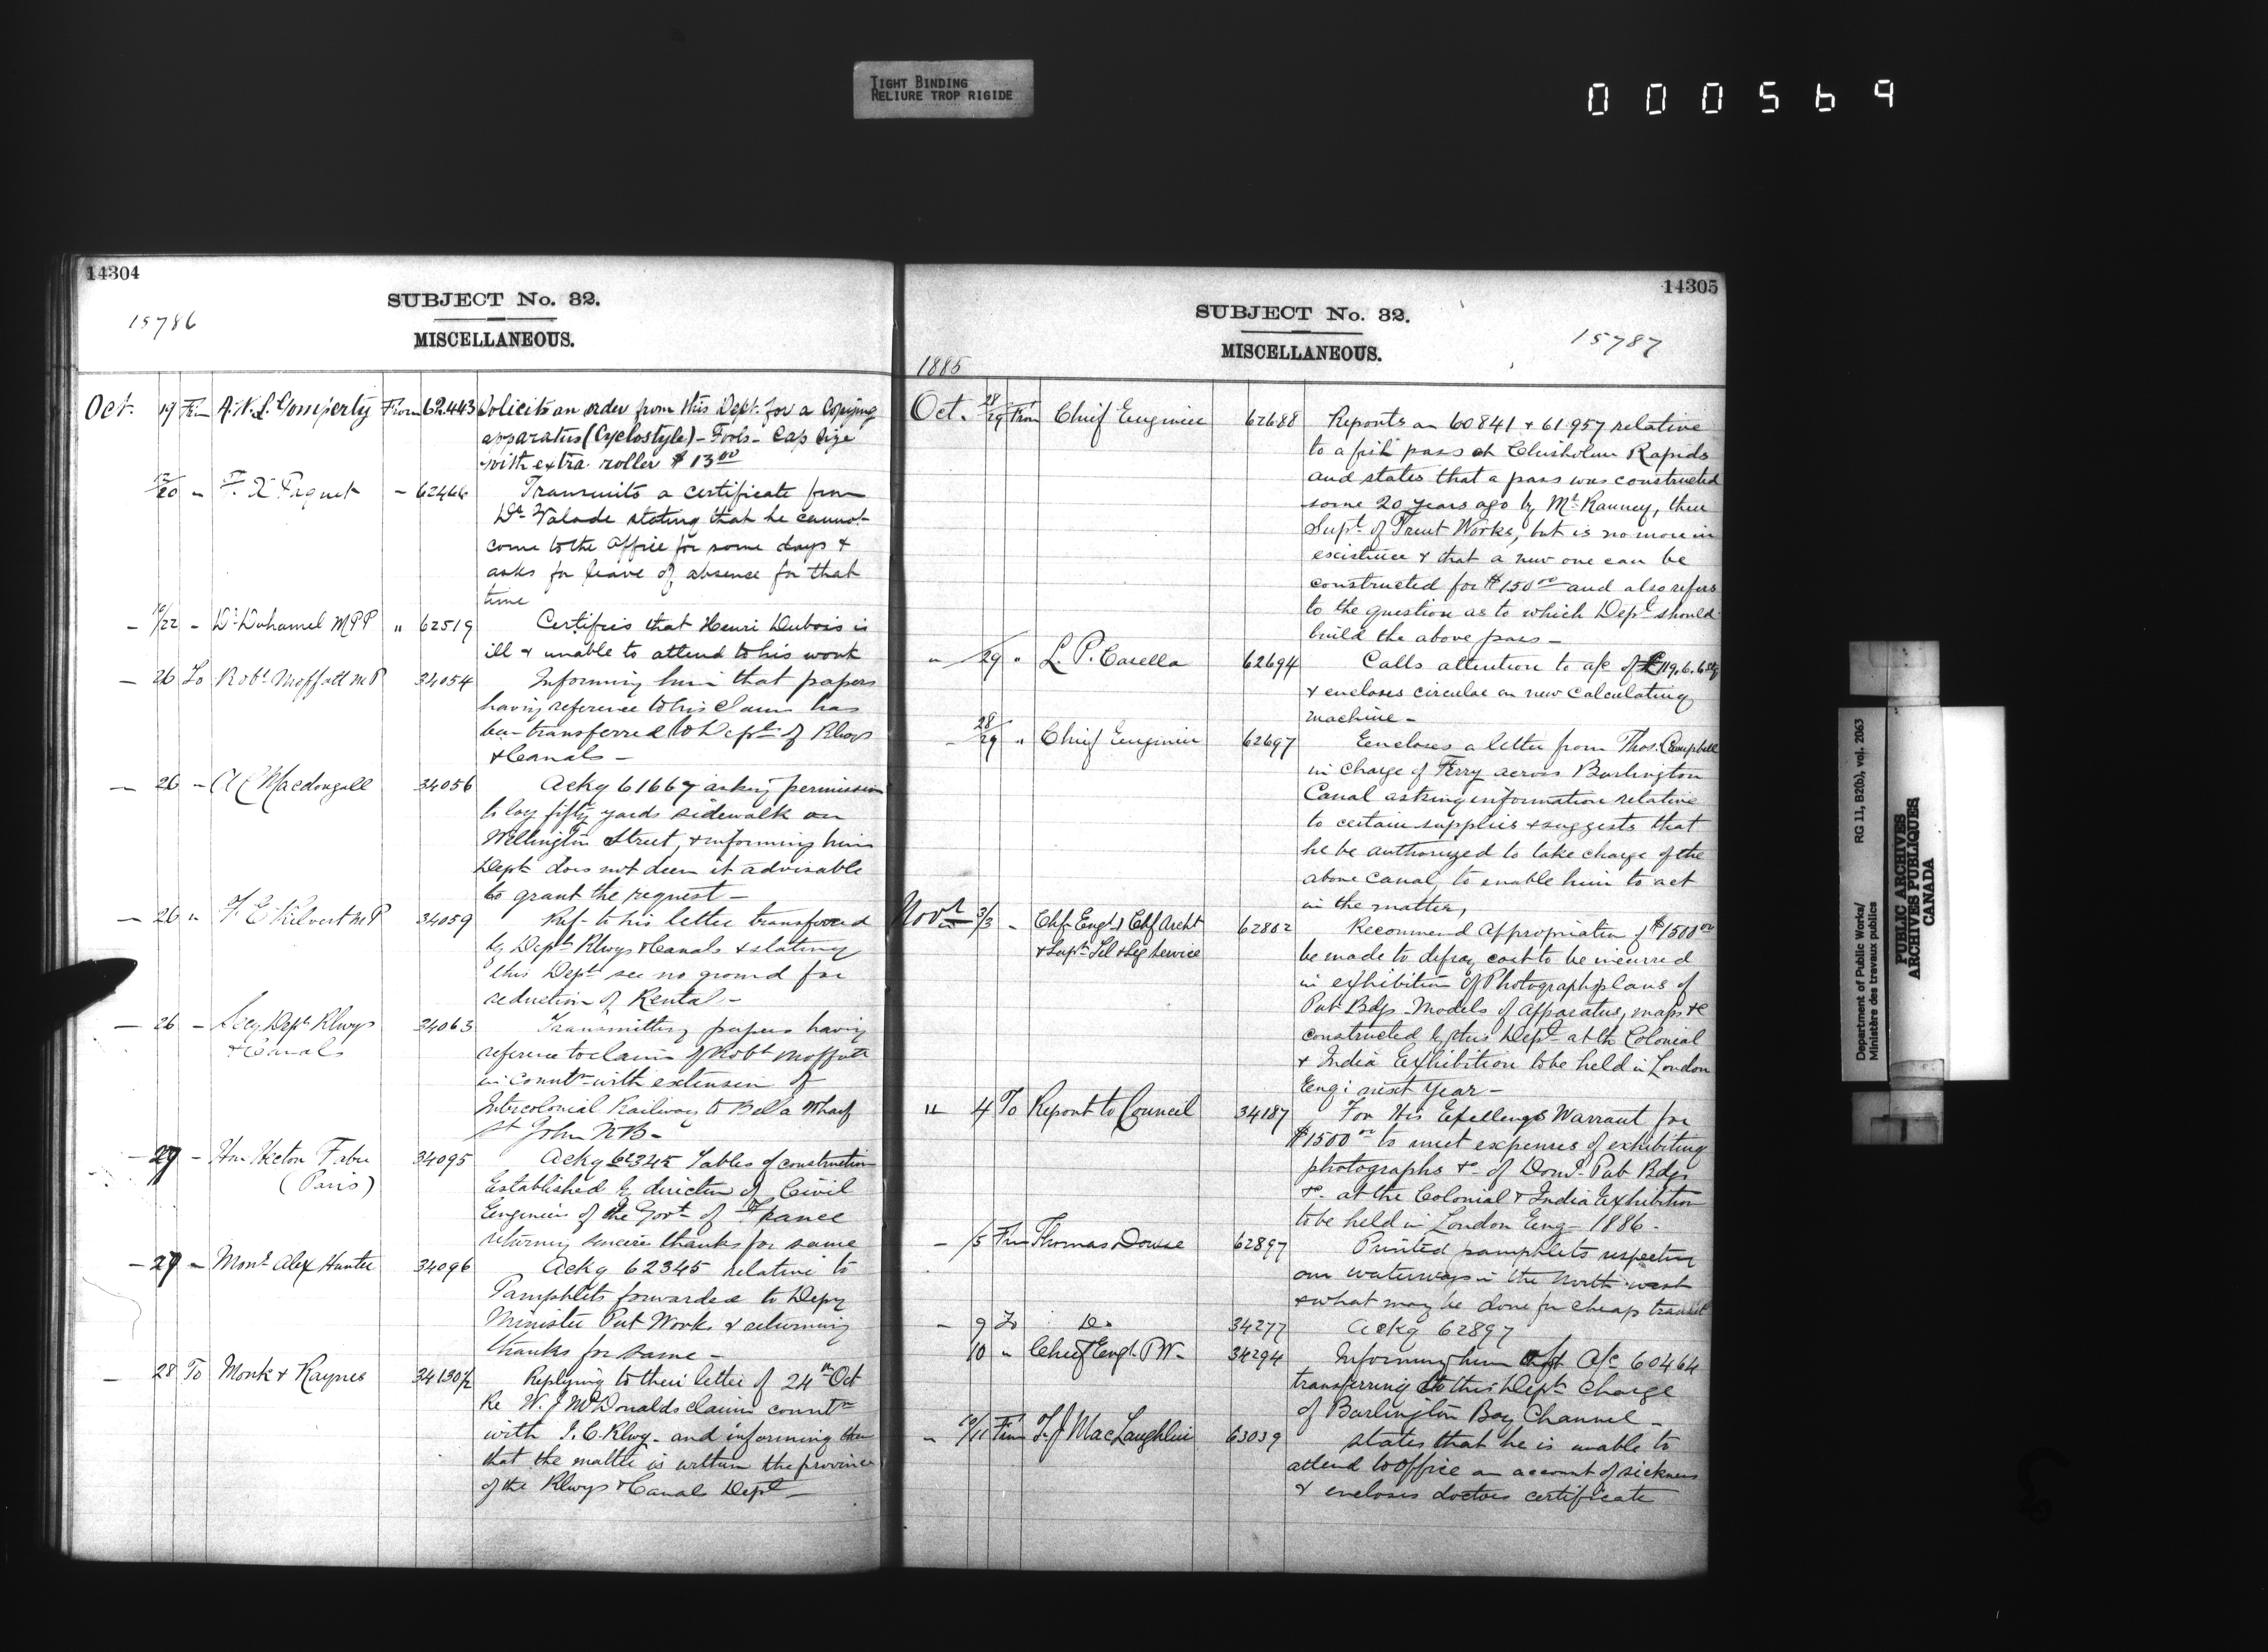 TIGHT BINDING
RELIURE TROP RIGIDE
000569
14304
SUBJECT No. 32.
15786
MISCELLANEOUS.
Oct. 19 Frm A. N. L. Gomperty From 62.443 Solicits an order from this Dept. for a Copying
apparatus (Cyclostyle) - Fools - Cap size
with extra roller $13.00
20 " F. X Paquet - 62446 Transmits a certificate from
Dr. Valade stating that he cannot
come to the office for some days &
asks for leave of absence for that
time
- 10/22 - Dr. Duhamel MPP " 62519 Certifies that Henri Dubois is
ill & unable to attend to his work
- 26 To Robt Moffatt MP 34054 Informing him that papers
having reference to his claim has
been transferred to Dept of Rlwys
& Canals -
- 26 - A C Macdougall 34056 Ackg 61667 asking permission
to lay fifty yards sidewalk on
Wellington Street, & informing him
Dept does not deem it advisable
to grant the request -
- 26 " F. E Kilvert MP 34059 Ref. to his letter transferred
by Dept Rlwys & Canals & stating
this Dept see no ground for
reduction of Rental -
- 26 - Secy Dept Rlwys 34063 Transmitting papers having
& Canals reference to claim of Robt Moffatt
in connt with extension of
Intercolonial Railway to Bell a Wharf
St John NB -
- 27 - Hon Hector Fabre 34095 Ackg 62345 Tables of construction
(Paris) Established by direction of Civil
Engineers of the Govt of France
returning sincere thanks for same
- 27 - Monr Alex Hunter 34096 Ackg 62345 relative to
Pamphlets forwarded to Depy
Minister Pub Works & returning
thanks for same -
- 28 To Monk & Raynes 34130 1/2 Replying to their letter of 24th Oct
Re W. J McDonalds claim connt
with I. C. Rlwy - and informing them
that the matter is within the province
of the Rlwys & Canals Dept
14305
SUBJECT No. 32.
15787
MISCELLANEOUS.
1885
Oct. 28/29 From Chief Engineer 62688 Reports on 60841 & 61957 relative
to a fish pass at Chisholm Rapids
and states that a pass was constructed
some 20 years ago by Mr. Ranney, then
Supt. of Trent Works, but is no more in
existence & that a new one can be
constructed for $150.00 and also refers
to the question as to which Dept should
build the above pass -
" 29 " L. P. Casella 62694 Calls attention to a/c of £119.6.6 stg
& encloses circular on new Calculating
machine -
- 28/29 " Chief Engineer 62697 Encloses a letter from Thos. Campbell
in charge of Ferry across Burlington
Canal asking information relative
to certain supplies & suggests that
he be authorized to take charge of the
above canal, to enable him to act
in the matter,
Novr 3/3 - Chf Engr & Chf Archt 62802 Recommend Appropriation of $1500.00
& Supt Tel & Sig Service be made to defray cost to be incurred
in exhibition of Photograph plans of
Pub Bdgs - Models of apparatus, maps &c
constructed by this Dept at the Colonial
& India Exhibition to be held in London
Eng: next Year -
" 4 To Report to Council 34187 For His Excellency's Warrant for
$1500.00 to meet expenses of exhibiting
photographs &c of Domn Pub Bdgs
&c. at the Colonial & India Exhibition
to be held in London Eng - 1886 -
- /5 Frm Thomas Dowse 62897 Printed pamphlets respecting
our waterways in the North west
& what may be done for cheap transit
- 9 To Do 34277 Ackg 62897
10 " Chief Engr. PW - 34294 Informing him a/c 60464
transferring to this Dept charge
of Burlington Bay Channel -
" 10/11 From F. J MacLaughlin 63039 States that he is unable to
attend to office on account of sickness
& encloses doctors certificate
Department of Public Works/
Ministère des travaux publics
RG 11, B2(b), vol. 2063
PUBLIC ARCHIVES
ARCHIVES PUBLIQUES
CANADA